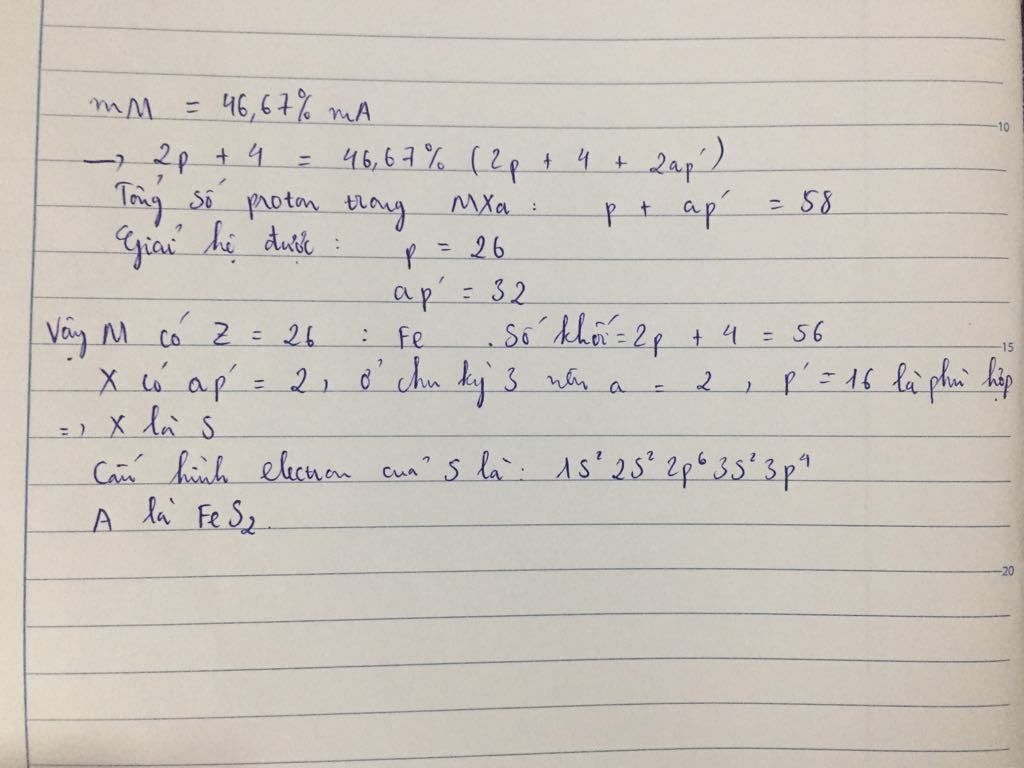 mM = 46,67% mA
→ 2p + 4 = 46,67% (2p + 4 + 2ap')
Tổng số proton trong MXa : p + ap' = 58
Giải hệ được : p = 26
ap' = 32
Vậy M có Z = 26 : Fe . Số khối = 2p + 4 = 56
X có ap' = 2, ở chu kỳ 3 nên a = 2, p' = 16 là phù hợp
=> X là S
Cấu hình electron của S là: 1S² 2S² 2p⁶ 3S² 3p⁴
A là FeS₂.
10
15
20